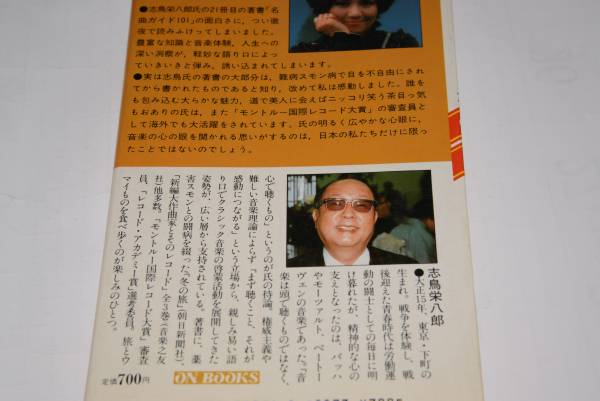 ●志鳥栄八郎氏の21冊目の著書「名
曲ガイド101」の面白さに、つい徹
夜で読みふけってしまいました。
豊富な知識と音楽体験、人生への
深い洞察が、軽妙な語り口によっ
ていきいきと弾み、誘い込まれてしまいます。
●実は志鳥氏の著書の大部分は、難病スモン病で目を不自由にされ
てから書かれたものであると知り、改めて私は感動しました。誰を
も包み込む大らかな魅力、道で美人に会えばニッコリ笑う茶目っ気
もおありの氏は、また「モントルー国際レコード大賞」の審査員と
して海外でも大活躍をされています。氏の明るく広やかな心眼に、
音楽の心の眼を開かれる思いがするのは、日本の私たちだけに限っ
たことではないのでしょう。
志鳥栄八郎
●大正15年、東京・下町の
生まれ。戦争を体験し、戦
後迎えた青春時代は労働運
動の闘士としての毎日に明
け暮れたが、精神的な心の
支えとなったのは、バッハ
やモーツァルト、ベートー
ヴェンの音楽であった。「音
楽は頭で聴くものではなく、
心で聴くもの」というのが氏の持論。権威主義や
難しい音楽理論によらず「まず聴くこと、それが
感動につながる」という立場から、親しみ易い語
り口でクラシック音楽の啓蒙活動を展開してきた
姿勢が、広い層から支持されている。著書に、薬
害スモンとの闘病を綴った『冬の旅』(朝日新聞社)
『新編大作曲家とそのレコード』全3巻(音楽之友
社)他多数。「モントルー国際レコード大賞」審査
員。「レコード・アカデミー賞」選考委員。旅とウ
マイものを食べ歩くのが楽しみのひとつ。
定価700円
ON BOOKS